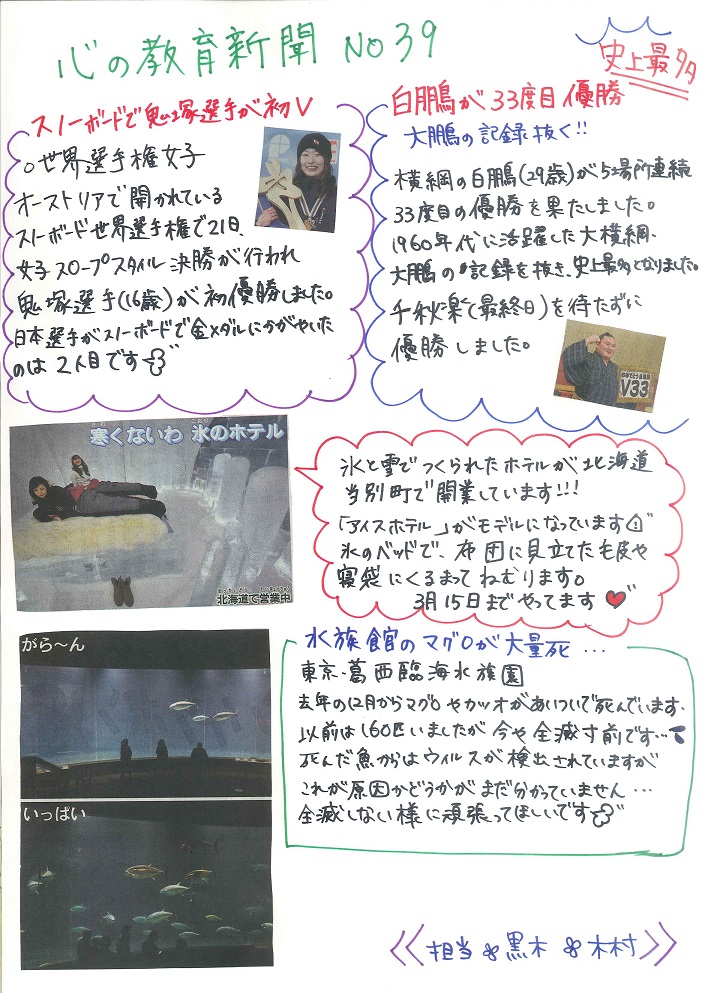 心の教育新聞 No39
史上最多
スノーボードで鬼塚選手が初V
○世界選手権女子
オーストリアで開かれている
スノーボード世界選手権で21日、
女子スロープスタイル決勝が行われ
鬼塚選手(16歳)が初優勝しました。
日本選手がスノーボードで金メダルにかがやいた
のは2人目です
白鵬が33度目優勝
大鵬の記録抜く!!
横綱の白鵬(29歳)が5場所連続
33度目の優勝を果たしました。
1960年代に活躍した大横綱、
大鵬の記録を抜き、史上最多となりました。
千秋楽(最終日)を待たずに
優勝しました。
V33
寒くないわ 氷のホテル
北海道で営業中
氷と雪でつくられたホテルが北海道
当別町で開業しています!!!
「アイスホテル」がモデルになっています
氷のベッドで、布団に見立てた毛皮や
寝袋にくるまってねむります。
3月15日までやってます♥
がら〜ん
いっぱい
水族館のマグロが大量死…
東京・葛西臨海水族園
去年の12月からマグロやカツオがあいついで死んでいます。
以前は160匹いましたが今や全滅寸前です…
死んだ魚からはウィルスが検出されていますが
これが原因かどうかがまだ分かっていません…
全滅しない様に頑張ってほしいです
《担当 黒木 木村》